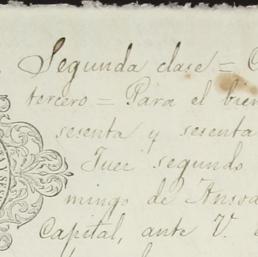 Segunda clase =
tercero = Para el bien
sesenta y sesenta
Juez segundo
mingo de Ansoa
Capital, ante V.